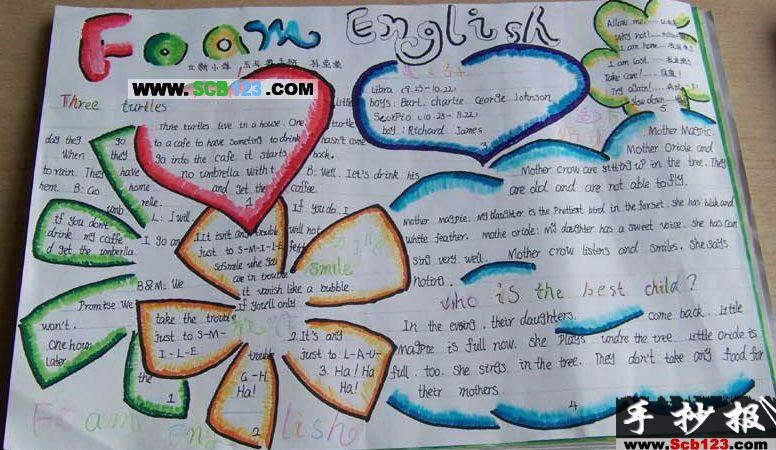 Foam English
www.SCB123.com
Three turtles
Three turtles live in a house. One
turtle
to a cafe to have someting to drink
hasn't come
day they go
When they
go into the cafe it starts
back.
to rain. They have
no umbrella with t
B: Well. Let's drink his
hem. B: Go home
and get the
coffee.
umb relle.
1
L: I will
If you do. I
will not
If you dont
drink my caffe
d get the umberella.
I go an
B&M: We
Promise We
won't.
One hour
later
the
1
1It isn't any trouble
just to S-M-I-L-E
So smile whe you
are in trouble
it vanish like a bubble.
If you'll only
smile
take the trouble
just to S-M-
I-L-E
trouble
G-H
Ha!
2
2.It's any
just to L-A-U-
3. Ha! Ha
Ha!
Libra (9.23-10.22)
boys: Bart. charlie. George. Johnson
Scorpio (10.23-11.22)
boy: Richard James
3
Allow me.
Why not!
I am home.
I am lost.
Take care!
Try again!
Slow down
5
Mother Magpie.
Mother Oriole and
Mother crow are sitting up in the tree. They
are old and are not able to fly.
Mother magpie: my daughter is the prettiest bird in the forset. she has blak and
white feather. mothe oriole: My daughter has a sweet voice. she has can
sing very well. Mother crow listens and smiles. She says
noting.
who is the best child?
In the evsing. their daughters. come back. Little
magpie is full now. she plays undre the tree. Little oriole is
full. too. She strgs in the tree. They don't take any food for
their mothers.
4
Foam English
手抄报
www.Scb123.com